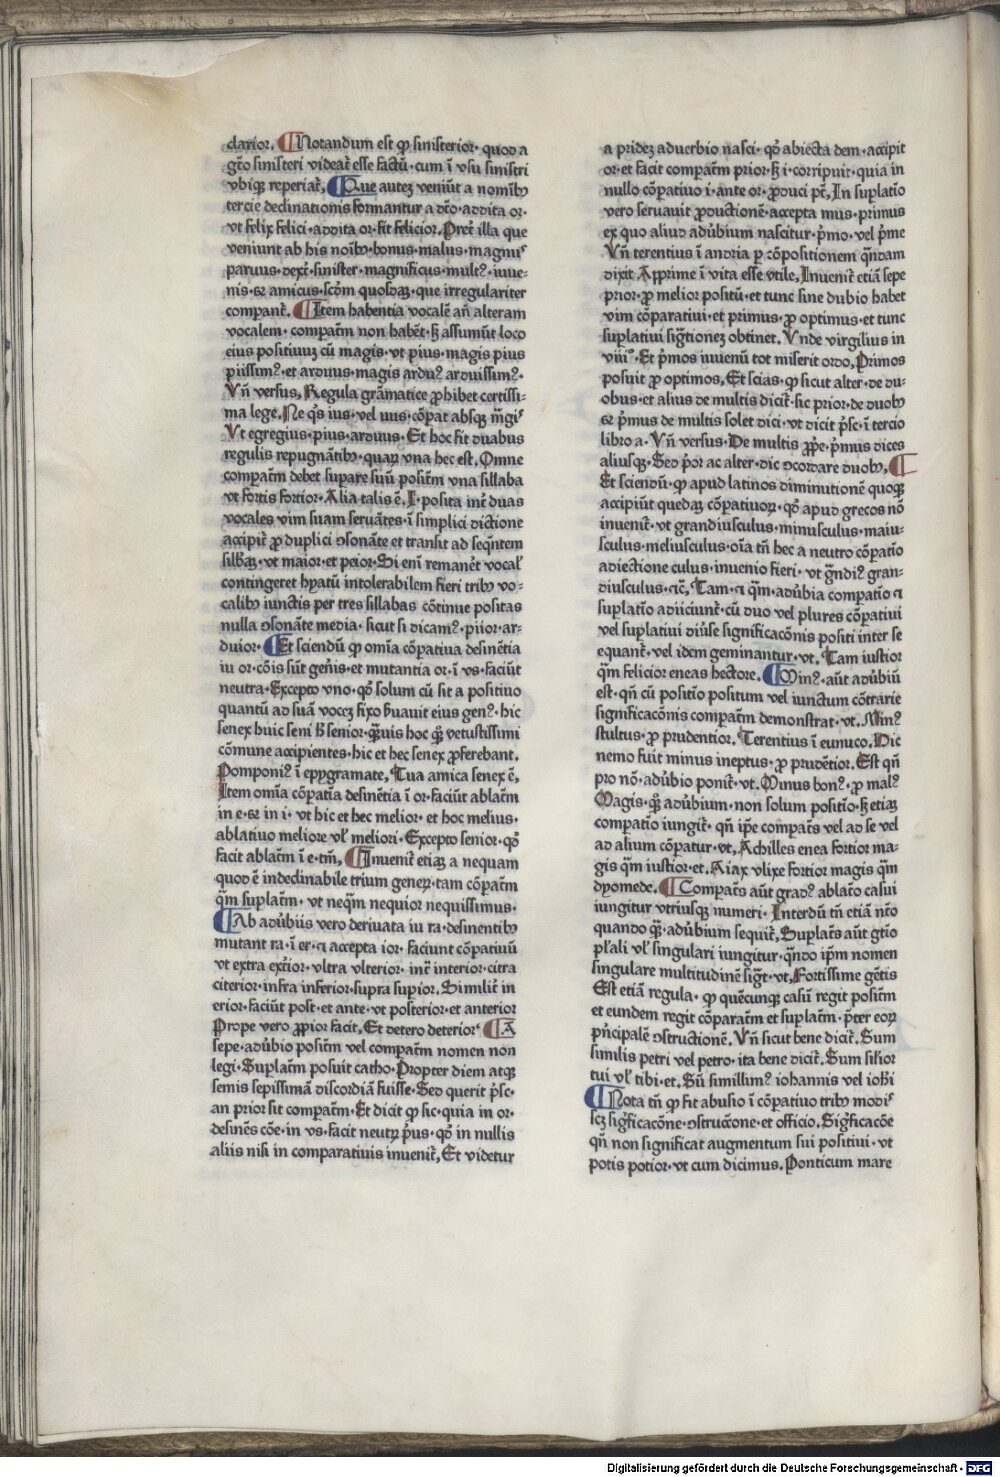 clarior. ¶Notandum est ꝙ sinisterior· quod a
gt̃o sinisteri videat̃ esse factũ· cum ĩ vsu sinistri
vbiqꝫ reperiat̃. ¶Que autẽ veniũt a nomĩbꝫ
tercie declinationis formantur a dt̃o· addita or·
vt felix felici· addita or· fit felicior. Pret̃ illa que
veniunt ab his noĩbꝫ· bonus· malus· magnus
paruus· dext̃· sinister· magnificus· multꝰ· iuue⸗
nis· ꝛ amicus· scd̃m quosdaꝫ· que irregulariter
compant̃. ¶Item habentia vocalẽ añ alteram
vocalem· compat̃m non habẽt· sꝫ assumũt loco
eius positiuuꝫ cũ magis· vt pius· magis pius
piissimꝰ· et arduus· magis arduꝰ arduissimꝰ·
Vñ versus. Regula grãmatice ꝓhibet certissi⸗
ma lege. Ne qͥs ius· vel uus· cõpat absqꝫ mg̃is
Vt egregius· pius· arduus· Et hoc fit duabus
regulis repugnãtibꝫ· quaꝝ vna hec est. Omne
compat̃m debet supare suũ posit̃m vna sillaba
vt fortis fortior· Alia talis ẽ. I· posita int̃ duas
vocales vim suam seruãtes· ĩ simplici dictione
accipit̃ ꝓ duplici ↄsonãte et transit ad seqũtem
sillb̃aꝫ· vt maior· et peior· Si eni̇̃ remanet̃ vocał
contingeret hyatũ intolerabilem fieri tribꝫ vo⸗
calibꝫ iunctis per tres sillabas cõtinue positas
nulla ↄsonãte media· sicut si dicamꝰ· piior· ar⸗
duior· ¶Et sciendũ ꝙ omĩa cõpatiua desinẽtia
iu or· cõis sũt geñis· et mutantia or· ĩ vs· faciũt
neutra· Excepto vno· qỡ solum cũ sit a positiuo
quantũ ad suã vocẽ fixo ẜuauit eius genꝰ· hic
senex huic seni h̃ senior· qͣ̃uis hoc qͣ̃ vetustissimi
cõmune accipientes· hic et hec senex ꝓferebant.
Pomponiꝰ ĩ epygramate. Tua amica senex ẽ.
Item omĩa cõpatĩa desinẽtia ĩ or· faciũt ablat̃m
in e· ꝛ in i· vt hic et hec melior· et hoc melius·
ablatiuo meliore vł meliori· Excepto senior· qỡ
facit ablat̃m ĩ e· tm̃. ¶Inuenit̃ etiaꝫ a nequam
quod ẽ indeclinabile trium geneꝝ· tam cõpat̃m
qͣ̃m suplat̃m· vt neqͣ̃m nequior nequissimus·
¶Ab adũbiis vero deriuata iu ra· desinentibꝫ
mutant ra· ĩ er· ꝛ accepta ior· faciunt cõpatiuũ
vt extra ext̃ior· vltra vlterior· int̃ interior· citra
citerior· infra inferior· supra supior· Similit̃ in
erior· faciũt post· et ante· vt posterior· et anterior
Prope vero ꝓpior facit. Et detero deterior ¶A
sepe· adũbio posit̃m vel compat̃m nomen non
legi· Suplat̃m posuit catho· Propter diem atqꝫ
semis sepissimã discordiã fuisse· Sed querit pͥsc·
an prior sit compat̃m· Et dicit ꝙ sic· quia in or·
desinẽs cõe· in vs· facit neutꝝ pͥus· qỡ in nullis
aliis nisi in comparatiuis inuenit̃. Et videtur
a prideꝫ aduerbio nasci· qỡ abiecta dem· accipit
or· et facit compat̃m prior· sꝫ i· corripuit· quia in
nullo cõpatiuo i· ante or· ꝓduci pt̃. In suplatio
vero seruauit ꝓductionẽ· accepta mus· primus
ex quo aliud adũbium nascitur· pͥmo· vel pͥme
Vñ terentius ĩ andria ꝑ cõpositionem qñdam
dixit Apprime ĩ vita esse vtile. Inuenit̃ etiã sepe
prior· ꝓ melior positũ· et tunc sine dubio habet
vim cõparatiui· et primus· ꝓ optimus· et tunc
suplatiui sigt̃ioneꝫ obtinet. Vnde virgilius in
viii°· Et pͥmos iuuenũ tot miserit ordo. Primos
posuit ꝓ optimos. Et scias· ꝙ sicut alter· de du⸗
obus· et alius de multis dicit̃· sic prior· de duobꝫ
ꝛ pͥmus de multis solet dici· vt dicit pͥsc· ĩ tercio
libro a· Vñ versus· De multis ꝓpͥe· pͥmus dices
aliusqꝫ· Sed pͥor ac alter· dic ↄcordare duobꝫ. ¶
Et sciendũ· ꝙ apud latinos diminutionẽ quoqꝫ
accipiũt quedaꝫ cõpatiuoꝝ· qỡ apud grecos nõ
inuenit̃· vt grandiusculus· minusculus· maiu⸗
sculus· meliusculus· oĩa tñ hec a neutro cõpatio
adiectione culus· inuenio fieri· vt gͣndiꝰ gran⸗
diusculus· ꝛc̃. Tam· ꝛ qͣ̃m· adũbia compatio ꝛ
suplatio adiiciunt̃· cũ duo vel plures cõpatiui
vel suplatiui diũse significacõnis positi inter se
equant̃· vel idem geminantur· vt. Tam iustior
qͣ̃m felicior eneas hectore. ¶Minꝰ· aũt adũbiũ
est· qñ cũ positio positum vel iunctum cõtrarie
significacõnis compat̃m demonstrat· vt. Minꝰ
stultus· ꝓ prudentior. Terentius ĩ eunuco. Hic
nemo fuit minus ineptus· ꝓ prudẽtior. Est qñ
pro nõ· adũbio ponit̃· vt. Minus bonꝰ· ꝓ malꝰ
Magis· qͣ̃ adũbium· non solum positio· sꝫ etiaꝫ
compatio iungit̃· qñ ip̃e compat̃s vel ad se vel
ad alium cõpatur· vt. Achilles enea fortior ma⸗
gis qͣ̃m iustior· et. Aiax vlixe fortior magis qͣ̃m
dyomede. ¶Compat̃s aũt gradꝰ ablat̃o casui
iungitur vtriusqꝫ numeri· Interdũ tñ etiã nt̃o
quando qͣ̃· adũbium sequit̃. Suplat̃s aũt gt̃io
pł'ali vł singulari iungitur· qñdo ip̃m nomen
singulare multitudinẽ sigt̃· vt. Fortissime gẽtis
Est etiã regula· ꝙ quẽcunqꝫ casũ regit posit̃m
et eundem regit cõparat̃m et suplat̃m· pͣter eoꝝ
pͥncipalẽ ↄstructionẽ. Vñ sicut bene dicit̃. Sum
similis petri vel petro· ita bene dicit̃. Sum sił'ior
tui vł tibi· et. Sũ simillimꝰ iohannis vel ioħi
¶Nota tñ ꝙ fit abusio ĩ cõpatiuo tribꝫ modis
scꝫ sigͥficacõne· ↄstruccõne· et officio. Sigͥficacõe
qñ non significat augmentum sui positiui· vt
potis potior· vt cum dicimus. Ponticum mare
Digitalisierung gefördert durch die Deutsche Forschungsgemeinschaft - DFG